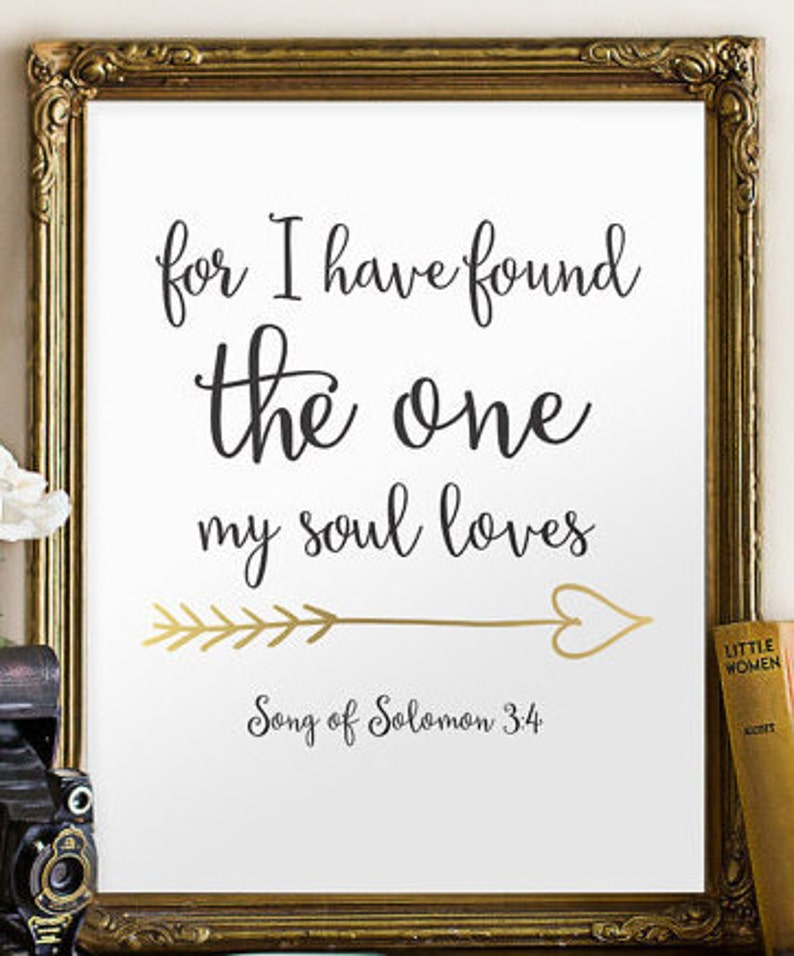 for I have found
the one
my soul loves
Song of Solomon 3:4
LITTLE
WOMEN
ALCOTT